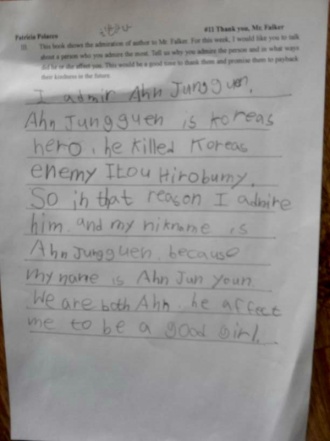 Patrizia Polacco #11 Thank you, Mr. Falker
III. This book shows the admiration of author to Mr. Falker. For this week, I would like you to talk
about a person who you admire the most. Tell us why you admire the person and in what ways
did he or she affect you. This would be a good time to thank them and promise them to payback
their kindness in the future.
I admir Ahn Jungguen.
Ahn Jungguen is koreas
hero, he killed Koreas
enemy Itou Hirobumy.
So in that reason I admire
him. and my nikname is
Ahn Jungguen. because
my name is Ahn Jun youn
We are both Ahn. he affect
me to be a good girl.